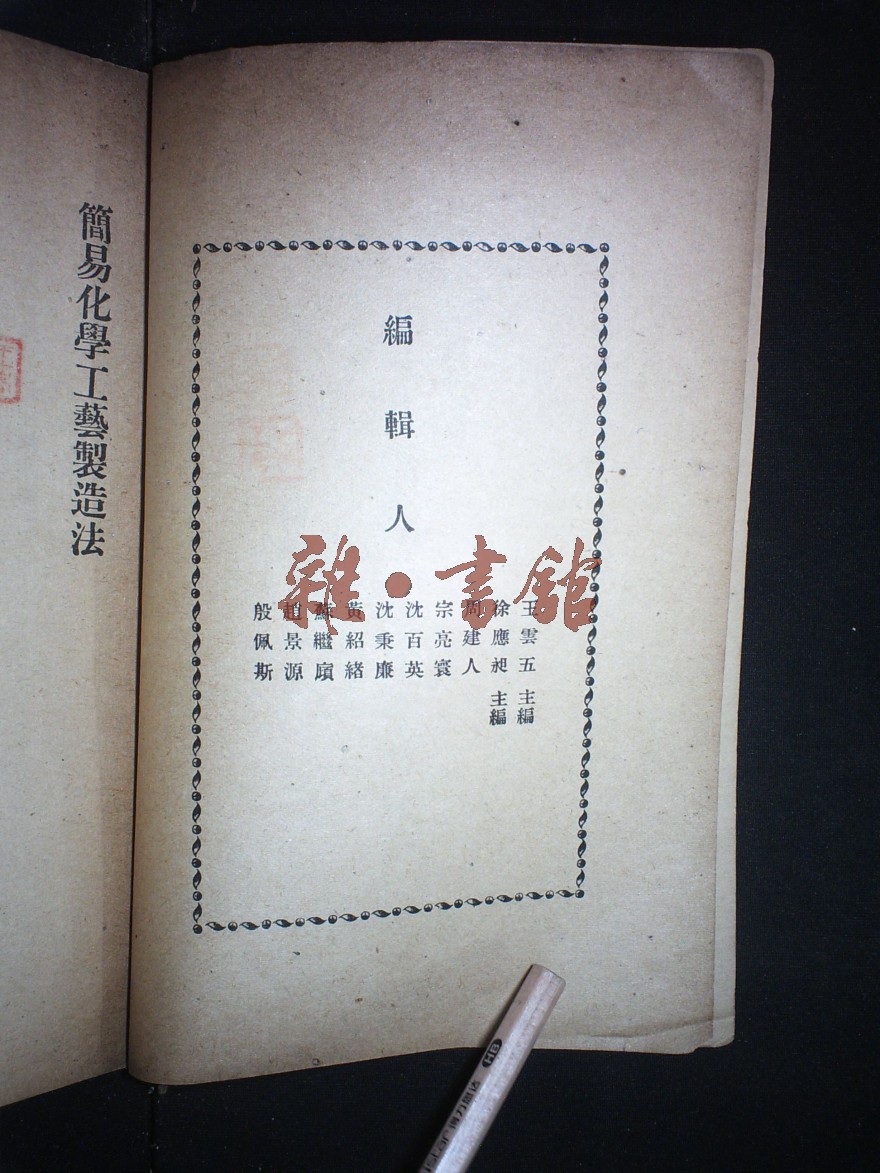 編輯人
王雲五 主編
徐應昶 主編
周建人
宗亮寰
沈百英
沈秉廉
黃紹緒
蘇繼廎
趙景源
殷佩斯
簡易化學工藝製造法
雜·書館
HB